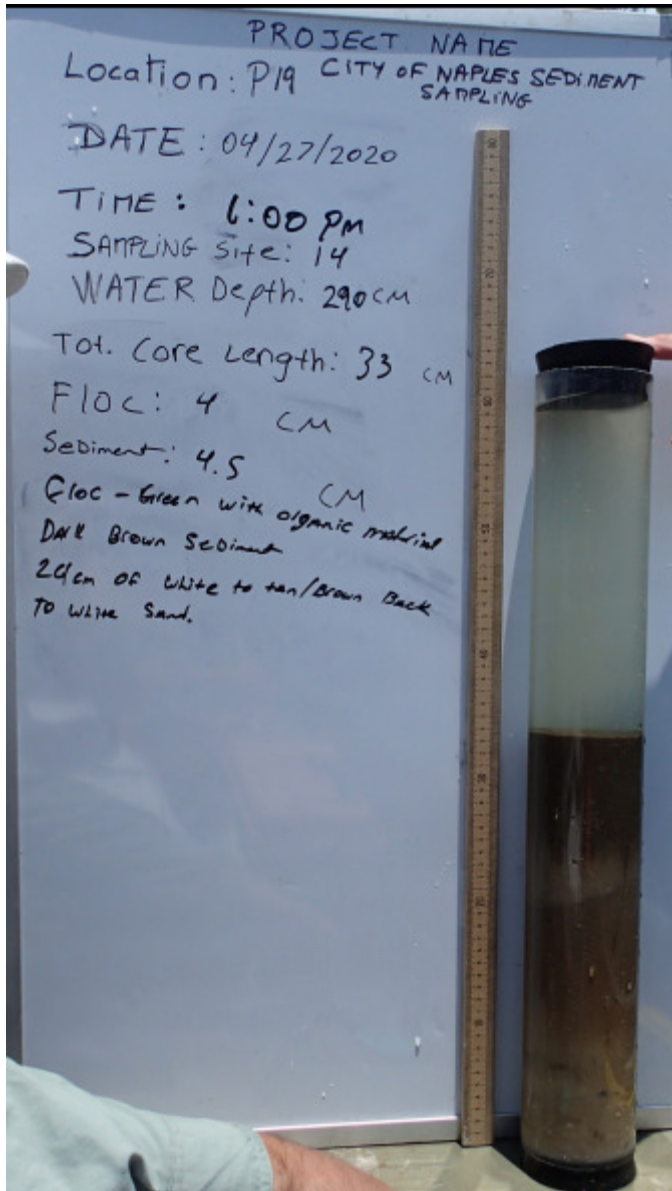 PROJECT NAME
Location: P19 CITY OF NAPLES SEDIMENT
SAMPLING
DATE: 04/27/2020
TIME: 1:00 PM
SAMPLING Site: 14
WATER Depth: 290 CM
Tot. Core Length: 33 CM
Floc: 4 CM
Sediment: 4.5 CM
Floc - Green with organic material
Dark Brown Sediment
24cm of white to tan/Brown Back
To white Sand.
80
70
60
50
40
30
20
10